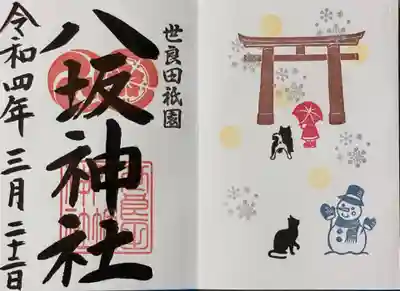 世良田祇園
八坂神社
令和四年 三月二十一日